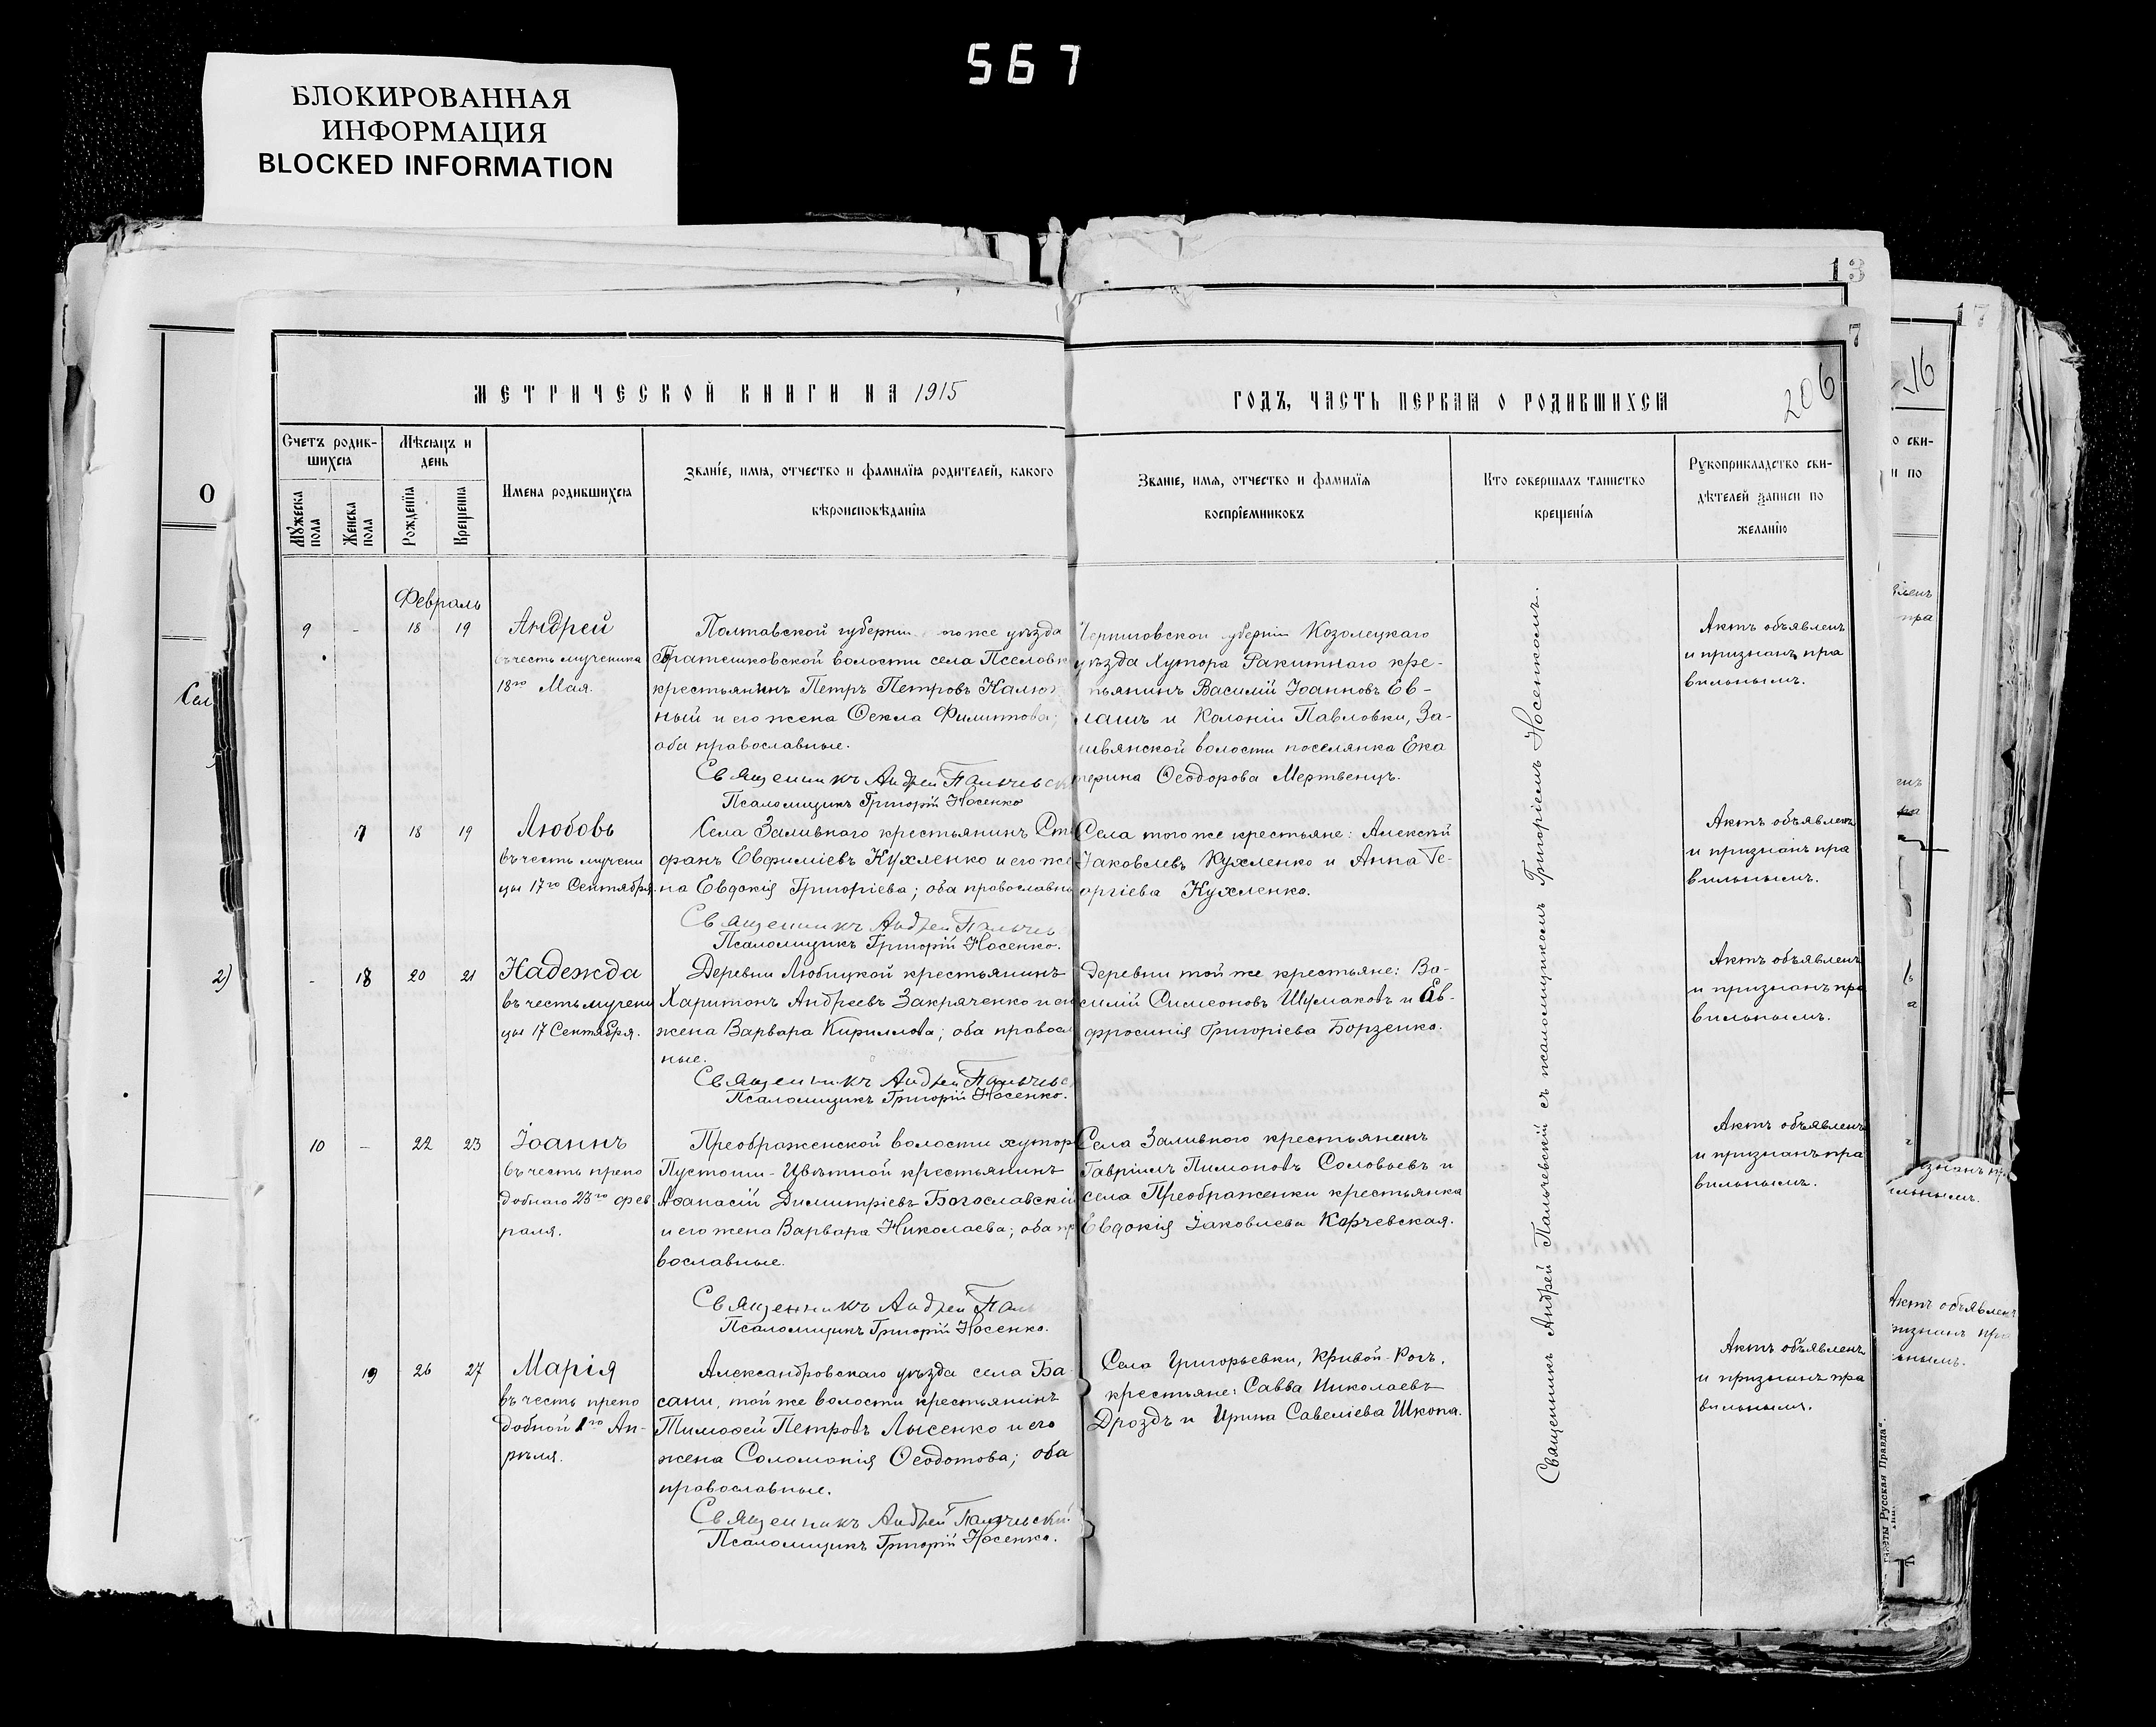 567
БЛОКИРОВАННАЯ
ИНФОРМАЦИЯ
BLOCKED INFORMATION
13
17
7
16
206
МЕТРИЧЕСКОЙ КНИГИ НА 1915
ГОДЪ, ЧАСТЬ ПЕРВАЯ О РОДИВШИХСЯ
Счетъ родив-
шихся
Мѣсяцъ и
день
Мужеска пола
Женска пола
Рожденія
Крещенія
Имена родившихся
Званіе, имя, отчество и фамилія родителей, какого
вѣроисповѣданія
Званіе, имя, отчество и фамилія
воспріемниковъ
Кто совершалъ таинство
крещенія
Рукоприкладство сви-
дѣтелей записи по
желанію
Февраль
9 - 18 19
Андрей
въ честь мученика
18го Мая.
Полтавской губерніи того же уѣзда
Братешковской волости села Пселовк
крестьянинъ Петръ Петровъ Калюж
ный и его жена Ѳекла Филиппова;
оба православные.
Священникъ Андрей Пальчевск
Псаломщикъ Григорій Носенко
Черниговской губерніи Козелецкаго
уѣзда Хутора Ракитнаго кре-
тьянинъ Василій Іоанновъ Ев-
лашъ и Колоніи Павловки, За-
ливянской волости поселянка Ека
терина Ѳеодорова Мертвенцъ.
Актъ объявленъ
и признанъ пра
вильнымъ.
17 18 19
Любовь
въ честь мучени
цы 17го Сентября.
Села Заливного крестьянинъ Сте
фанъ Евфиміевъ Кухленко и его же
на Евдокія Григоріева; оба православны
Священникъ Андрей Пальчев
Псаломщикъ Григорій Носенко.
Села того же крестьяне: Алексѣй
Іаковлевъ Кухленко и Анна Ге-
оргіева Кухленко.
Актъ объявленъ
и признанъ пра
вильнымъ.
- 18 20 21
Надежда
въ честь мучени
цы 17 Сентября.
Деревни Любицкой крестьянинъ
Харитонъ Андреевъ Закряченко и ег
жена Варвара Кириллова; оба правосл
ные.
Священникъ Андрей Пальчевс
Псаломщикъ Григорій Носенко.
Деревни той же крестьяне: Ва-
силій Симеоновъ Шумаковъ и Ев-
фросинія Григоріева Борзенко.
Актъ объявленъ
и признанъ пра
вильнымъ.
10 - 22 23
Іоаннъ
въ честь препо
добнаго 23го фев
раля.
Преображенской волости хутор
Пустоши-Цвѣтной крестьянинъ
Аѳанасій Димитріевъ Богославскій
и его жена Варвара Николаева; оба пр
вославные.
Священникъ Андрей Паль
Псаломщикъ Григорій Носенко.
Села Заливного крестьянинъ
Гавріилъ Пимоновъ Соловьевъ и
села Преображенки крестьянка
Евдокія Іаковлева Корчевская.
Актъ объявленъ
и признанъ пра
вильнымъ.
19 26 27
Марія
въ честь препо
добной 1го Ап-
рѣля.
Александровскаго уѣзда села Ба-
сани, той же волости крестьянинъ
Тимоѳей Петровъ Лысенко и его
жена Соломонія Ѳеодотова; оба
православные.
Священникъ Андрей Пальчевскій
Псаломщикъ Григорій Носенко.
Села Григорьевки, Кривой-Рогъ,
крестьяне: Савва Николаевъ
Дроздъ и Ирина Савеліева Шкопа.
Актъ объявленъ
и признанъ пра
вильнымъ.
Священникъ Андрей Пальчевскій съ псаломщикомъ Григоріемъ Носенкомъ.
О
Сел
2)
о сви-
и по
Актъ объявленъ
изнанъ пра
ьнымъ.
газеты Русская Правда".